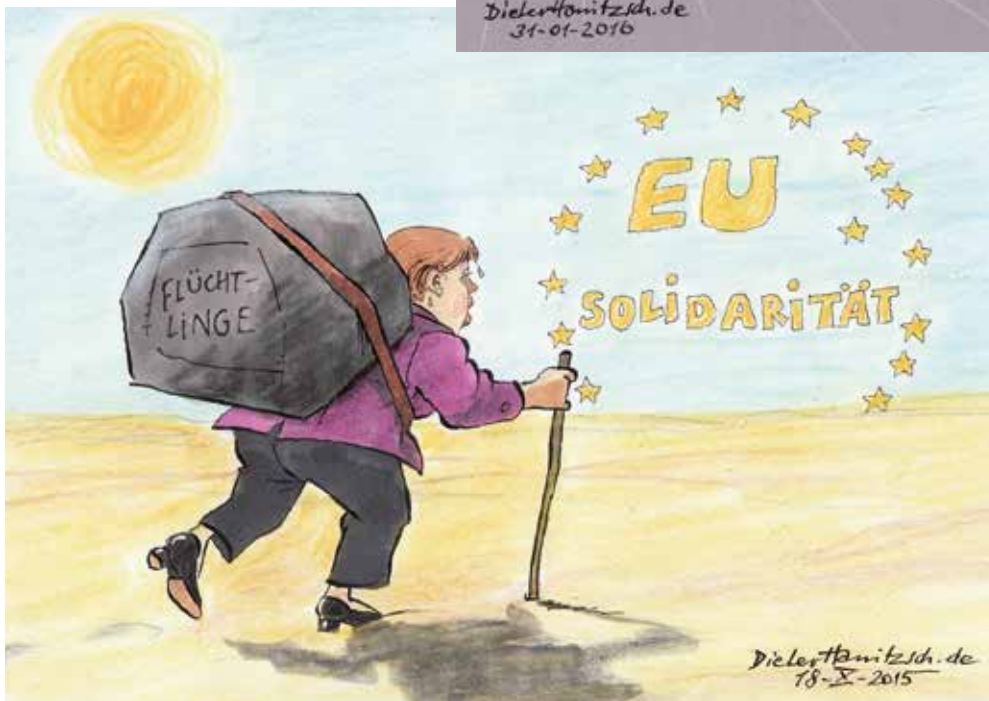 DieterHanitzsch.de
31-01-2016
EU
SOLIDARITÄT
FLÜCHT-
LINGE
DieterHanitzsch.de
18-X-2015